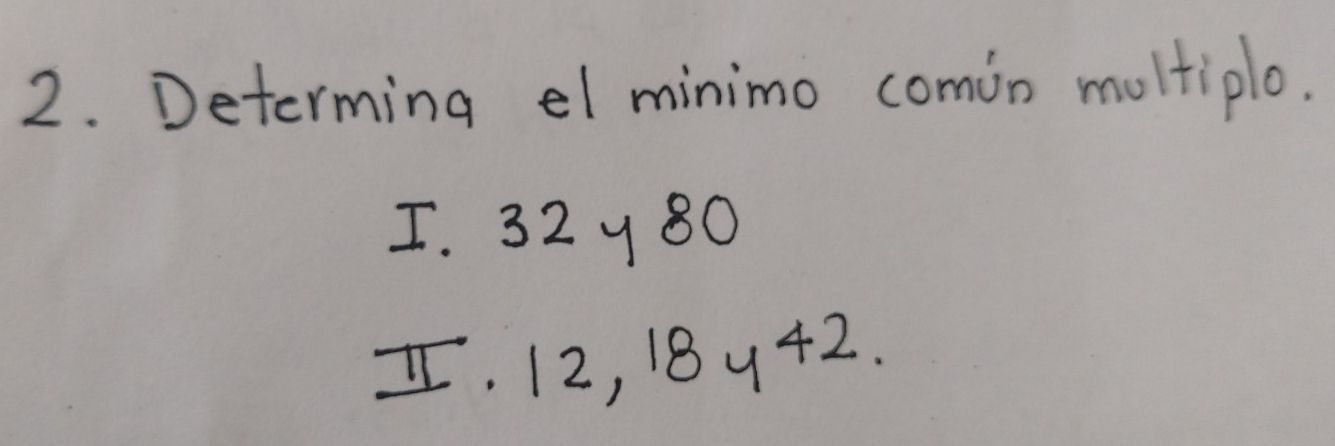 2. Determina el minimo común multiplo.
I. 32 y 80
II. 12, 18 y 42.